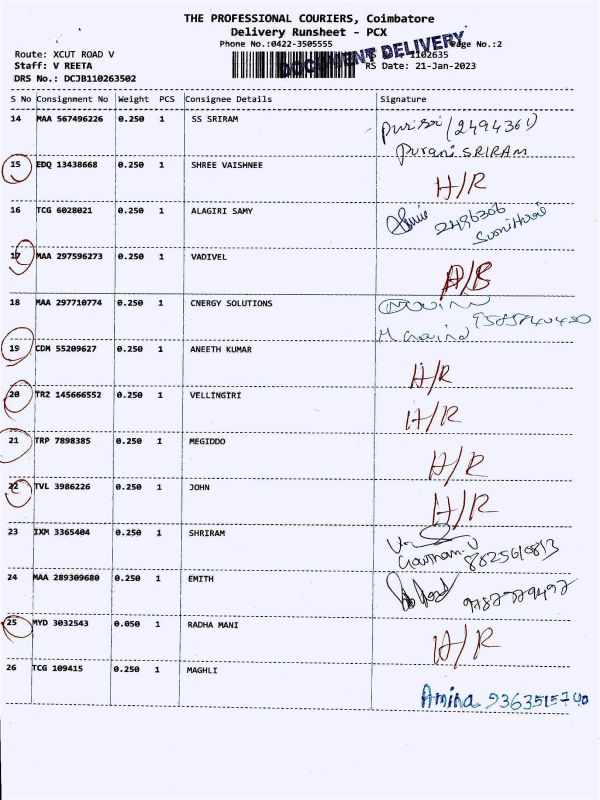 THE PROFESSIONAL COURIERS, Coimbatore
Delivery Runsheet - PCX
Phone No.:0422-3505555 Page No.:2
DOCUMENT DELIVERY
Route: XCUT ROAD V 1102635
Staff: V REETA RS Date: 21-Jan-2023
DRS No.: DCJB110263502
S No Consignment No Weight PCS Consignee Details Signature
14 MAA 567496226 0.250 1 SS SRIRAM (2494361)
Purani SRIRAM
15 EDQ 13438668 0.250 1 SHREE VAISHNEE H/R
16 TCG 6028021 0.250 1 ALAGIRI SAMY 2496306
17 MAA 297596273 0.250 1 VADIVEL A/B
18 MAA 297710774 0.250 1 CNERGY SOLUTIONS
19 CDM 55209627 0.250 1 ANEETH KUMAR H/R
20 TRZ 145666552 0.250 1 VELLINGIRI H/R
21 TRP 7898385 0.250 1 MEGIDDO H/R
22 TVL 3986226 0.250 1 JOHN H/R
23 IXM 3365404 0.250 1 SHRIRAM
24 MAA 289309680 0.250 1 EMITH
25 MYD 3032543 0.050 1 RADHA MANI H/R
26 TCG 109415 0.250 1 MAGHLI
Amina 9363515740